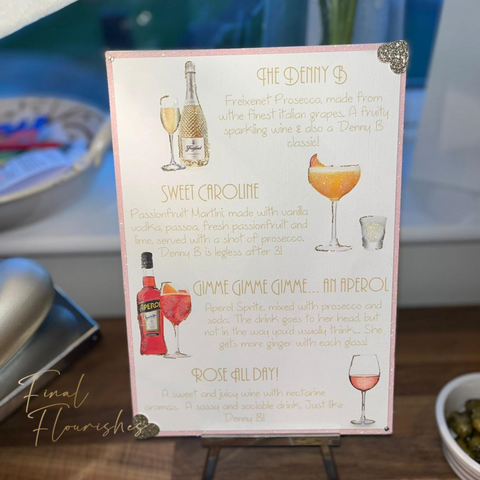 THE DENNY B
Freixenet Prosecco, made from
w/the finest italian grapes. A fruity
sparkling wine & also a 'Denny B
classic!
SWEET CAROLINE
Passionfruit Martini, made with vanilla
vodka, passoa, fresh passionfruit and
lime, served with a shot of prosecco.
'Denny B is legless after 3!
GIMME GIMME GIMME... AN APEROL
Aperol Spritz, mixed with prosecco and
soda. The drink goes to her head, but
not in the way you'd usually think... She
gets more ginger with each glass!
ROSE ALL DAY!
A sweet and juicy wine with nectarine
aromas. A sassy and sociable drink. Just like
Denny B!.
APEROL
Freixenet
Final
Flourishes